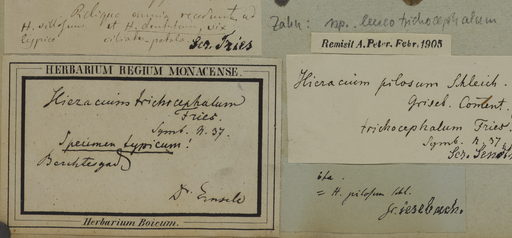 Reliqua omnia recedunt, ad
H. villosum et H. dentatum, vix
typica ciliato-petala
Scr. Fries
Zahn: ssp. leucotrichocephalum
Remisit A. Peter. Febr. 1905
HERBARIUM REGIUM MONACENSE.
Hieracium trichocephalum
Fries.
Symb. n. 37.
Specimen typicum!
Berchtesgad
Dr. Einsele
Herbarium Boicum.
Hieracium pilosum Schleich.
Griseb. Coment.
trichocephalum Fries.
Symb. n. 37
Scr. Sendtn
ita
= H. pilosum Schl.
Grisebach.